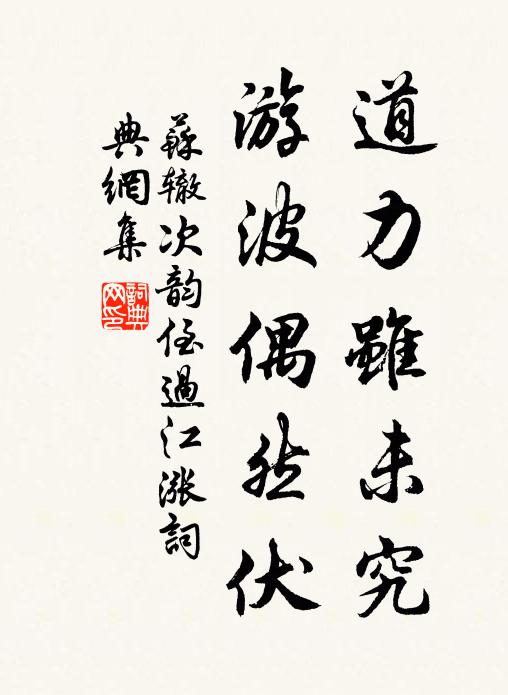 道力雖未究
游波偶然伏
蘇辙次韵侄過江涨詞
典網集
詞典网印